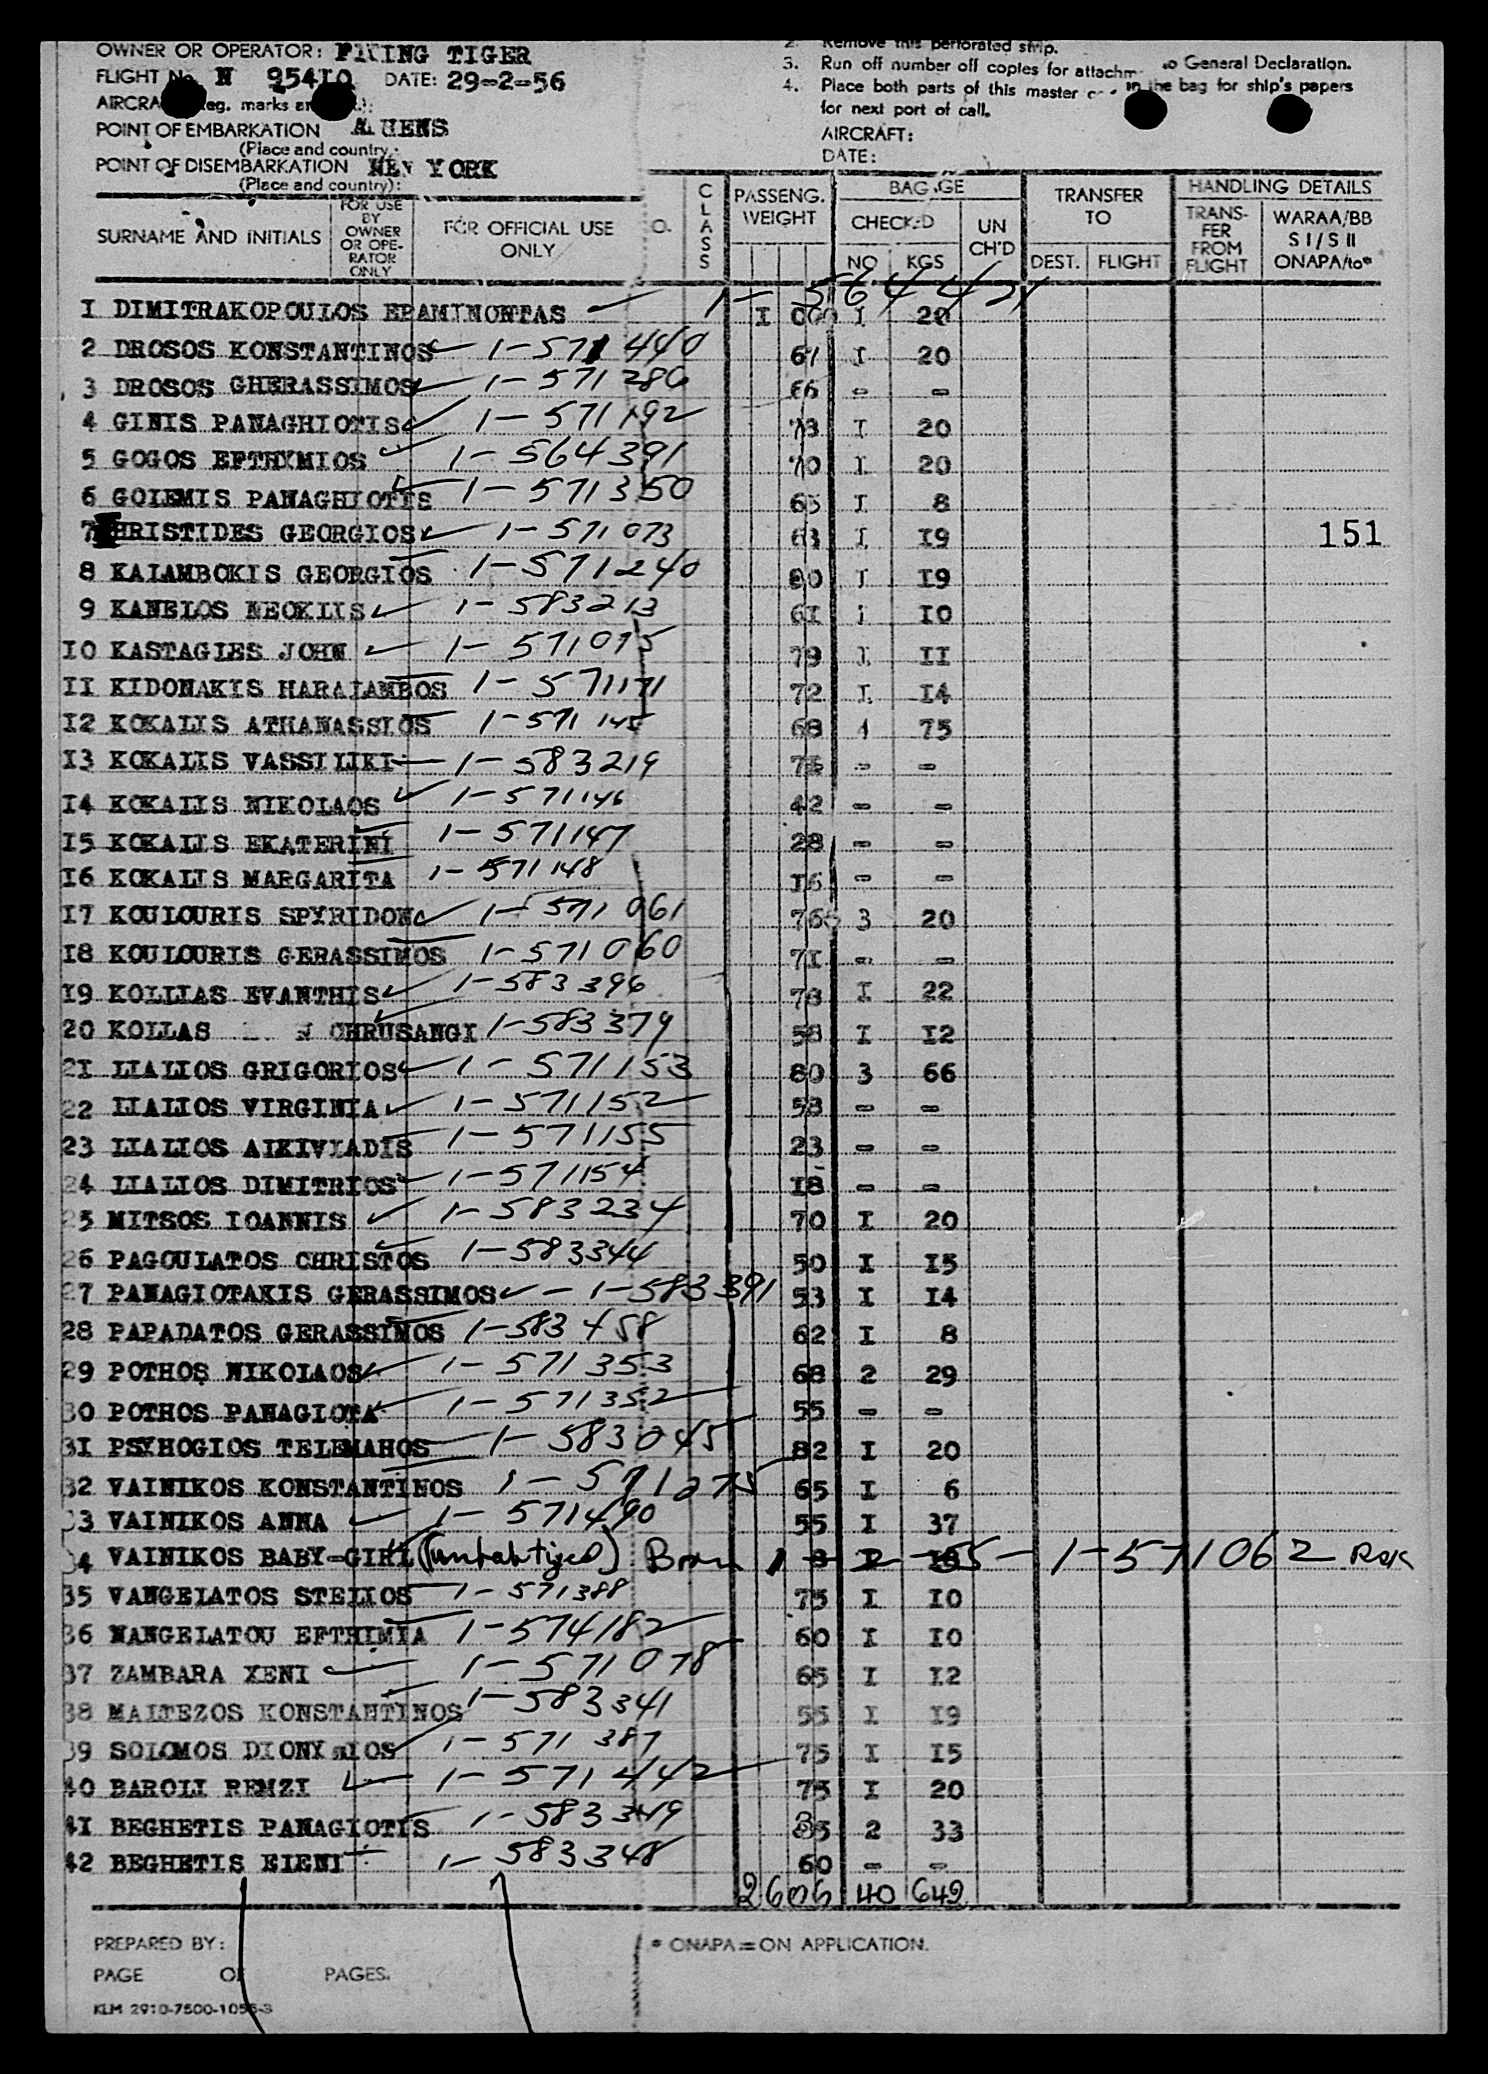 OWNER OR OPERATOR: FLYING TIGER
FLIGHT No. N 9541Q DATE: 29-2-56
AIRCRA
POINT OF EMBARKATION ATHENS
(Place and country):
POINT OF DISEMBARKATION NEW YORK
(Place and country):
2. Remove this perforated strip.
3. Run off number off copies for attachm to General Declaration.
4. Place both parts of this master in the bag for ship's papers
for next port of call.
AIRCRAFT:
DATE:
SURNAME AND INITIALS FOR USE BY OWNER OR OPE-RATOR ONLY FOR OFFICIAL USE ONLY O. CLASS PASSENG. WEIGHT BAGGAGE CHECKED NO KGS UN CH'D TRANSFER TO DEST. FLIGHT HANDLING DETAILS TRANS-FER FROM FLIGHT WARAA/BB S I / S II ONAPA/to*
1 DIMITRAKOPOULOS EPAMINONTAS 1- 564421 I 00 I 20
2 DROSOS KONSTANTINOS 1-571440 67 I 20
3 DROSOS GHERASSIMOS 1-571286 66 - -
4 GINIS PANAGHIOTIS 1-571192 73 I 20
5 GOGOS EFTHYMIOS 1-564391 70 I 20
6 GOLEMIS PANAGHIOTIS 1-571350 65 I 8
7 HRISTIDES GEORGIOS 1-571073 63 I 19
151
8 KALAMBOKIS GEORGIOS 1-571240 80 I 19
9 KANELOS NEOKLIS 1-583213 61 I 10
10 KASTAGIES JOHN 1-571075 79 I II
II KIDONAKIS HARALAMBOS 1-571171 72 I 14
12 KOKALIS ATHANASSIOS 1-571145 68 4 75
13 KOKALIS VASSILIKI 1-583219 75 - -
14 KOKALIS NIKOLAOS 1-571146 42 - -
15 KOKALIS EKATERINI 1-571147 28 - -
16 KOKALIS MARGARITA 1-571148 16 - -
17 KOULOURIS SPYRIDON 1-571061 76 3 20
18 KOULOURIS GERASSIMOS 1-571060 71 - -
19 KOLLIAS EVANTHIS 1-583396 78 I 22
20 KOLLAS CHRUSANGI 1-583379 58 I 12
21 LIALIOS GRIGORIOS 1-571153 80 3 66
22 LIALIOS VIRGINIA 1-571152 58 - -
23 LIALIOS ALKIVIADIS 1-571155 23 - -
24 LIALIOS DIMITRIOS 1-571154 18 - -
25 MITSOS IOANNIS 1-583234 70 I 20
26 PAGOULATOS CHRISTOS 1-583344 50 I 15
27 PANAGIOTAKIS GERASSIMOS - 1-583391 53 I 14
28 PAPADATOS GERASSIMOS 1-583458 62 I 8
29 POTHOS NIKOLAOS 1-571353 68 2 29
30 POTHOS PANAGIOTA 1-571352 55 - -
31 PSYHOGIOS TELEMAHOS 1-583045 82 I 20
32 VAINIKOS KONSTANTINOS 1-571275 65 I 6
33 VAINIKOS ANNA 1-571490 55 I 37
34 VAINIKOS BABY-GIRL (unbabtized) Born 1-2-55-1-571062 R&K
35 VANGELATOS STELIOS 1-571388 75 I 10
36 NANGELATOU EFTHIMIA 1-574182 60 I 10
37 ZAMBARA XENI 1-571078 65 I 12
38 MALTEZOS KONSTANTINOS 1-583341 55 I 19
39 SOLOMOS DIONYSIOS 1-571387 75 I 15
40 BAROLI REMZI 1-571442 75 I 20
41 BEGHETIS PANAGIOTIS 1-583349 85 2 33
42 BEGHETIS ELENI 1-583348 60 - -
2606 40 642
PREPARED BY:
PAGE OF PAGES.
* ONAPA = ON APPLICATION.
KLM 2910-7500-1055-3